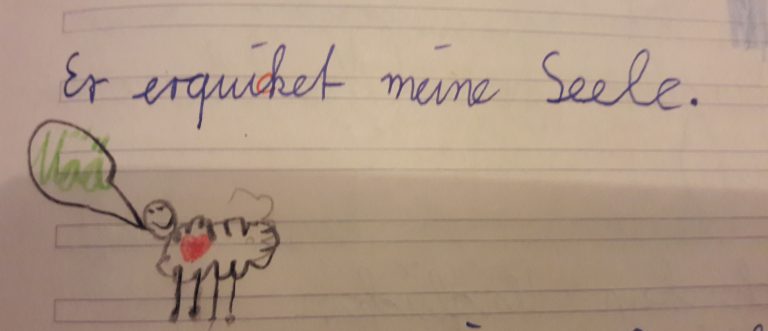 Er erquicket meine Seele.
Mää